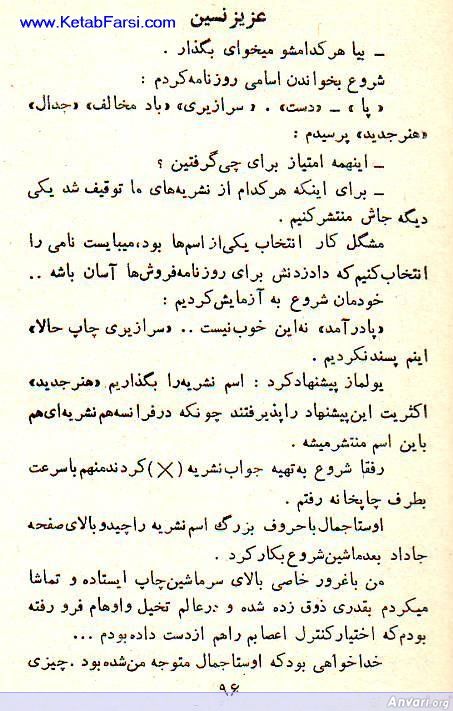 عزیز نسین
www.KetabFarsi.com
ــ بیا هرکدامشو میخوای بگذار .
شروع بخواندن اسامی روزنامه‌کردم :
«پا» ــ «دست» . «سرازیری» «باد مخالف» «جدال»
«هنرجدید» پرسیدم :
ــ اینهمه امتیاز برای چی‌گرفتین ؟
ــ برای اینکه هرکدام از نشریه‌های ما توقیف شد یکی
دیگه جاش منتشرکنیم .
مشگل کار انتخاب یکی‌از اسم‌ها بود،میبایست نامی را
انتخاب‌کنیم‌که دادزدنش برای روزنامه‌فروش‌ها آسان باشه ..
خودمان شروع به آزمایش‌کردیم :
«پادرآمد» نه‌این خوب‌نیست .. «سرازیری چاپ حالا»
اینم پسندنکردیم .
یولماز پیشنهادکرد : اسم نشریه‌را بگذاریم «هنرجدید»
اکثریت این‌پیشنهاد راپذیرفتند چونکه درفرانسه‌هم‌نشریه‌ای‌هم
باین اسم منتشرمیشه .
رفقا شروع به‌تهیه جواب‌نشریه (×)کردندمنهم‌باسرعت
بطرف چاپخانه رفتم .
اوستاجمال‌باحروف بزرگ اسم‌نشریه راچیدوبالای‌صفحه
جاداد بعدماشین‌شروع‌بکارکرد .
من باغرور خاصی بالای سرماشین‌چاپ ایستاده و تماشا
میکردم بقدری ذوق زده شده و درعالم تخیل واوهام فرو رفته
بودم‌که اختیارکنترل اعصابم راهم ازدست داده‌بودم ...
خداخواهی بودکه اوستاجمال متوجه من‌شده‌بود .چیزی
۹۶
Anvari.org